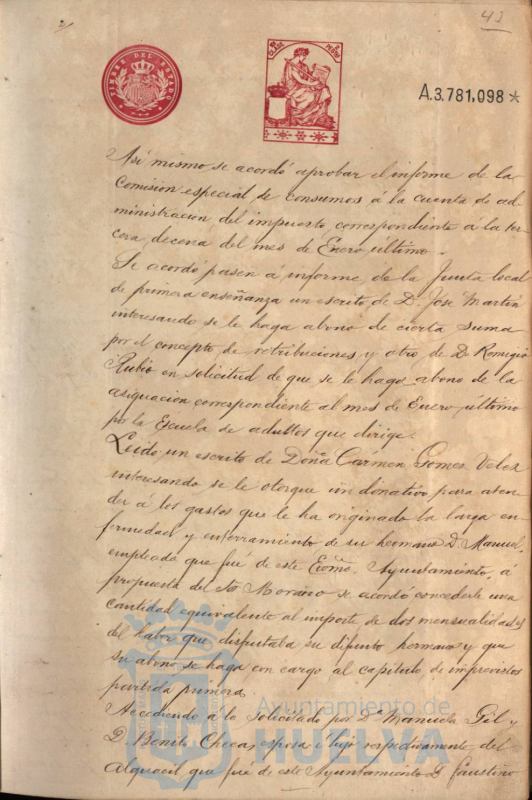 43
TIMBRE DEL ESTADO
A.3.781,098*
Asi mismo se acordó aprobar el informe de la
Comision especial de consumos á la cuenta de ad-
ministracion del impuesto, correspondiente á la ter-
cera decena del mes de Enero último.
Se acordó pasen á informe de la Junta local
de primera enseñanza un escrito de D. José Martin
interesando se le haga abono de cierta suma
por el concepto de retribuciones y otro de D. Remigio
Rubio en solicitud de que se le haga abono de la
asignacion correspondiente al mes de Enero último
por la Escuela de adultos que dirige.
Leido un escrito de Doña Cármen Gomez Velez
interesando se le otorgue un donativo para aten-
der á los gastos que le ha originado la larga en-
fermedad y enterramiento de su hermano D. Manuel,
empleado que fué de este Excmo. Ayuntamiento, á
propuesta del Sr. Moreno se acordó concederle una
cantidad equivalente al importe de dos mensualidades
del haber que disfrutaba su difunto hermano y que
su abono se haga con cargo al capítulo de imprevistos
partida primera.
Accediendo á lo solicitado por Da. Manuela Gil y
D. Benito Checa, esposa é hijo respectivamente del
Alguacil que fué de este Ayuntamiento D. Faustino
Ayuntamiento de
HUELVA